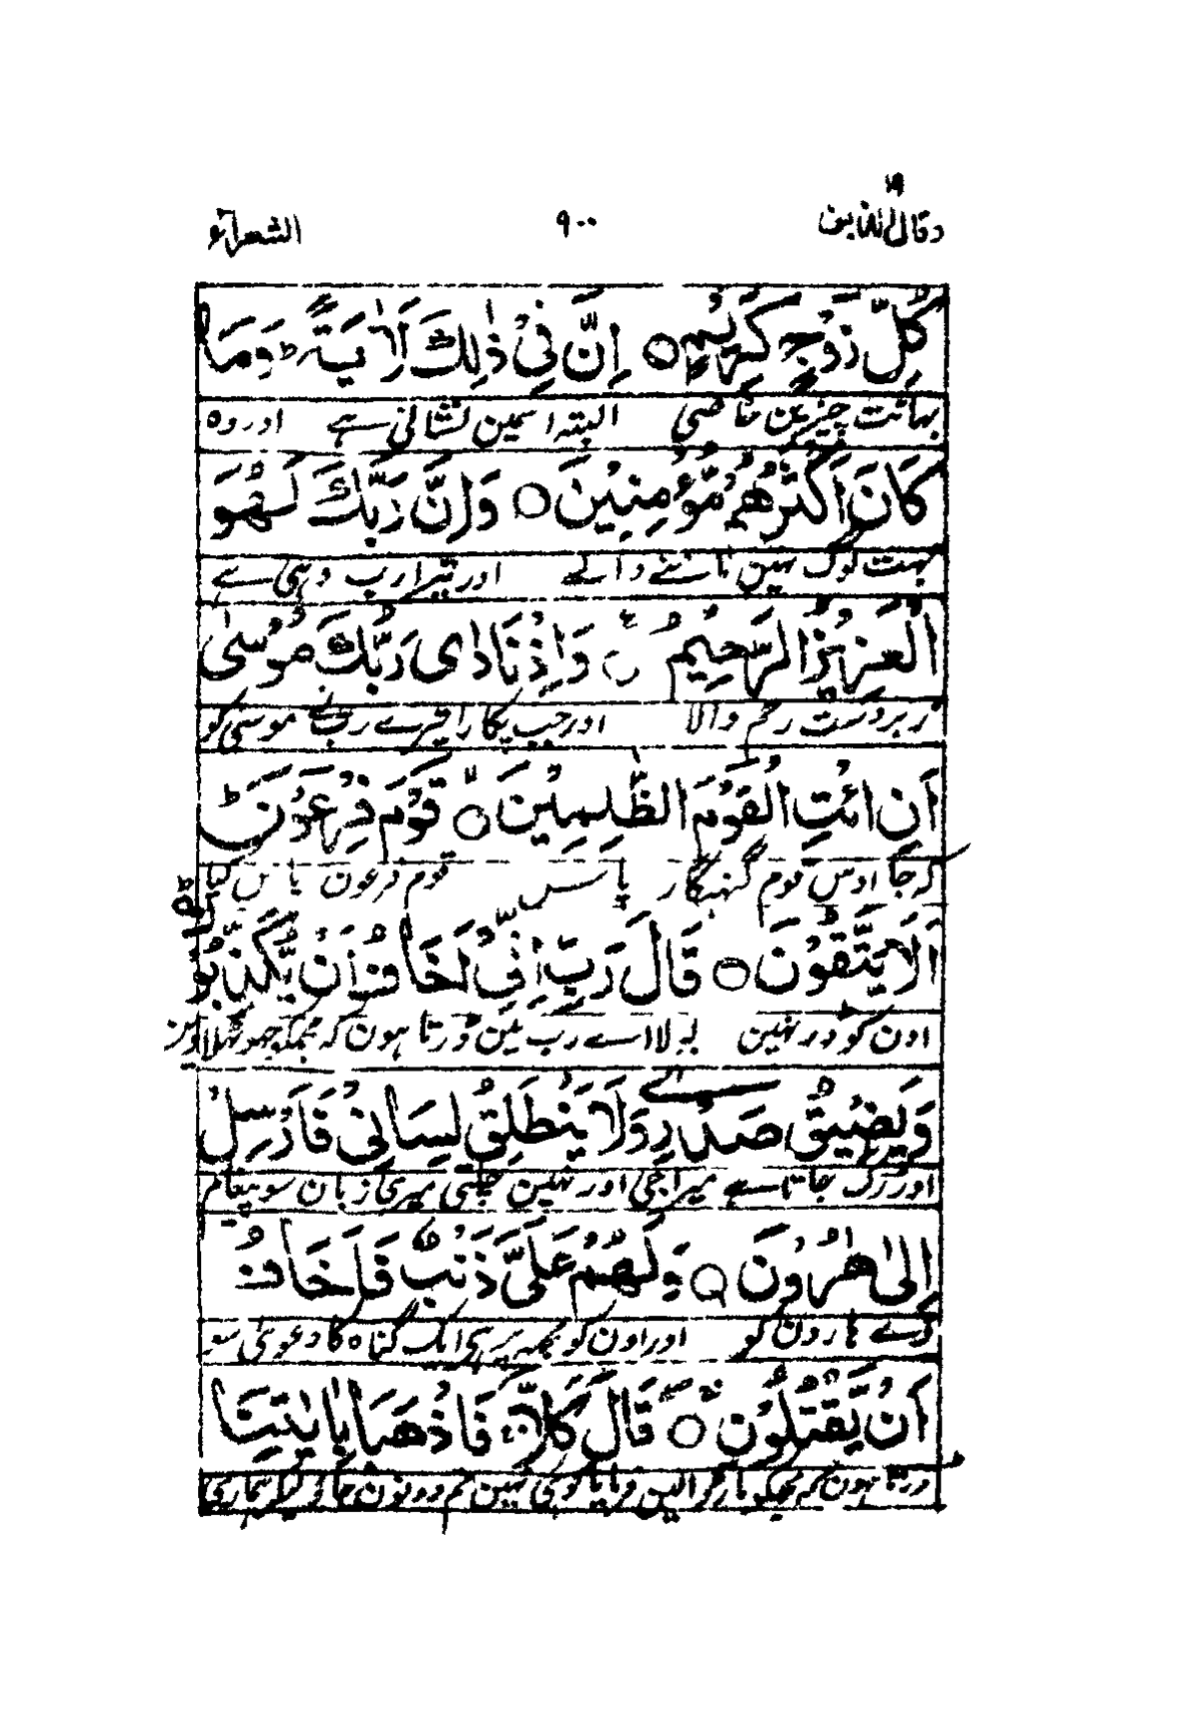 ۱۹
وقال الذین ۹۰۰ الشعرآء
كُلِّ زَوْجٍ كَرِيْمٍ ○ اِنَّ فِيْ ذٰلِكَ لَاٰيَةً ؕ وَمَا
بہانت چیزین خاصی البتہ اسمین نشانی ہے اور وہ
كَانَ اَكْثَرُهُمْ مُّؤْمِنِيْنَ ○ وَاِنَّ رَبَّكَ لَهُوَ
بہت لوگ نہین ماننے والے اور تیرا رب وہی ہے
الْعَزِيْزُ الرَّحِيْمُ ○ وَاِذْ نَادٰى رَبُّكَ مُوْسٰى
زبردست رحم والا اور جب پکارا تیرے رب نے موسیٰ کو
اَنِ ائْتِ الْقَوْمَ الظّٰلِمِيْنَ ○ قَوْمَ فِرْعَوْنَ ؕ
کہ جا اوس قوم گنہگار پاس قوم فرعون پاس کیا
اَلَا يَتَّقُوْنَ ○ قَالَ رَبِّ اِنِّيْ اَخَافُ اَنْ يُّكَذِّبُوْ
اون کو ڈر نہین بولا اے رب مین ڈرتا ہون کہ مجکو جھوٹھلاوین
وَيَضِيْقُ صَدْرِيْ وَلَا يَنْطَلِقُ لِسَانِيْ فَاَرْسِلْ
اور رک جاتا ہے میرا جی اور نہین چلتی میری زبان سو پیغام
اِلٰى هٰرُوْنَ ○ وَلَهُمْ عَلَيَّ ذَنْبٌ فَاَخَافُ
کردے ہارون کو اور اون کو مجھ پر ہی ایک گناہ کا دعویٰ سو
اَنْ يَّقْتُلُوْنِ ○ قَالَ كَلَّا ۚ فَاذْهَبَا بِاٰيٰتِنَا
ڈرتا ہون کہ مجکو مار ڈالین فرمایا کوئی نہین تم دونون جاؤ لیکر ہماری